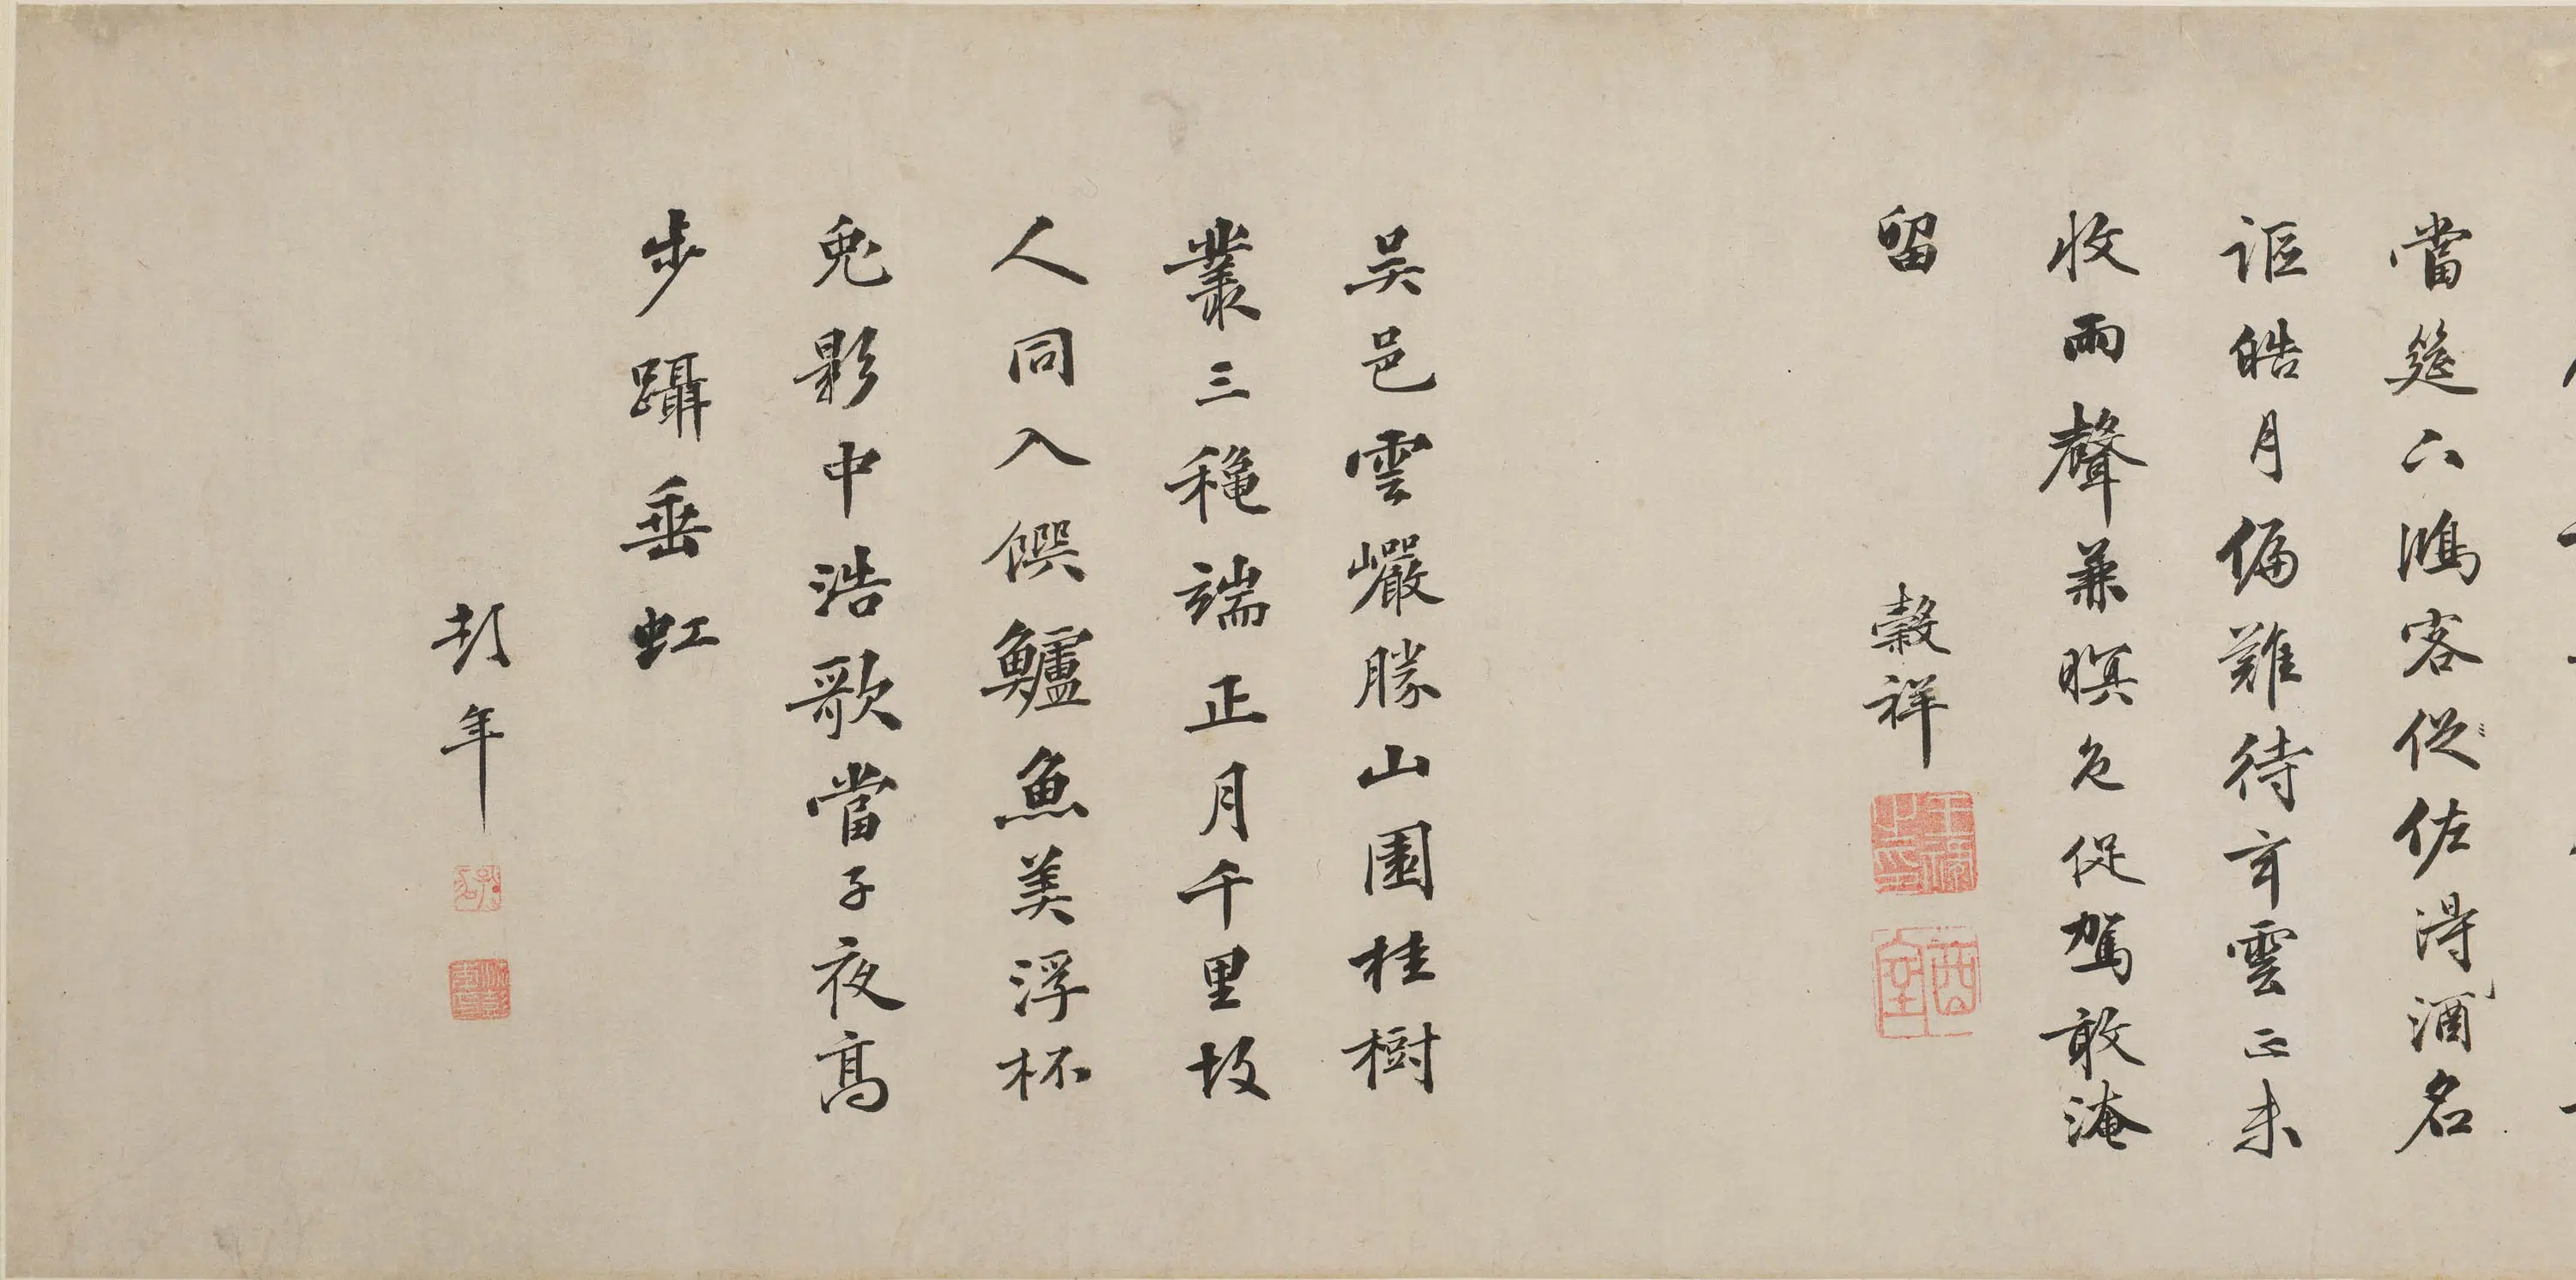 當筵六鴻客從佐得酒名
謳皓月偏難待玄雲正未
收雨聲兼暝色促駕敢淹
留
穀祥
王祿之印
酉室
吳邑雲巖勝山園桂樹
叢三穐端正月千里故
人同入饌鱸魚美浮杯
兔影中浩歌當子夜高
步躡垂虹
彭年